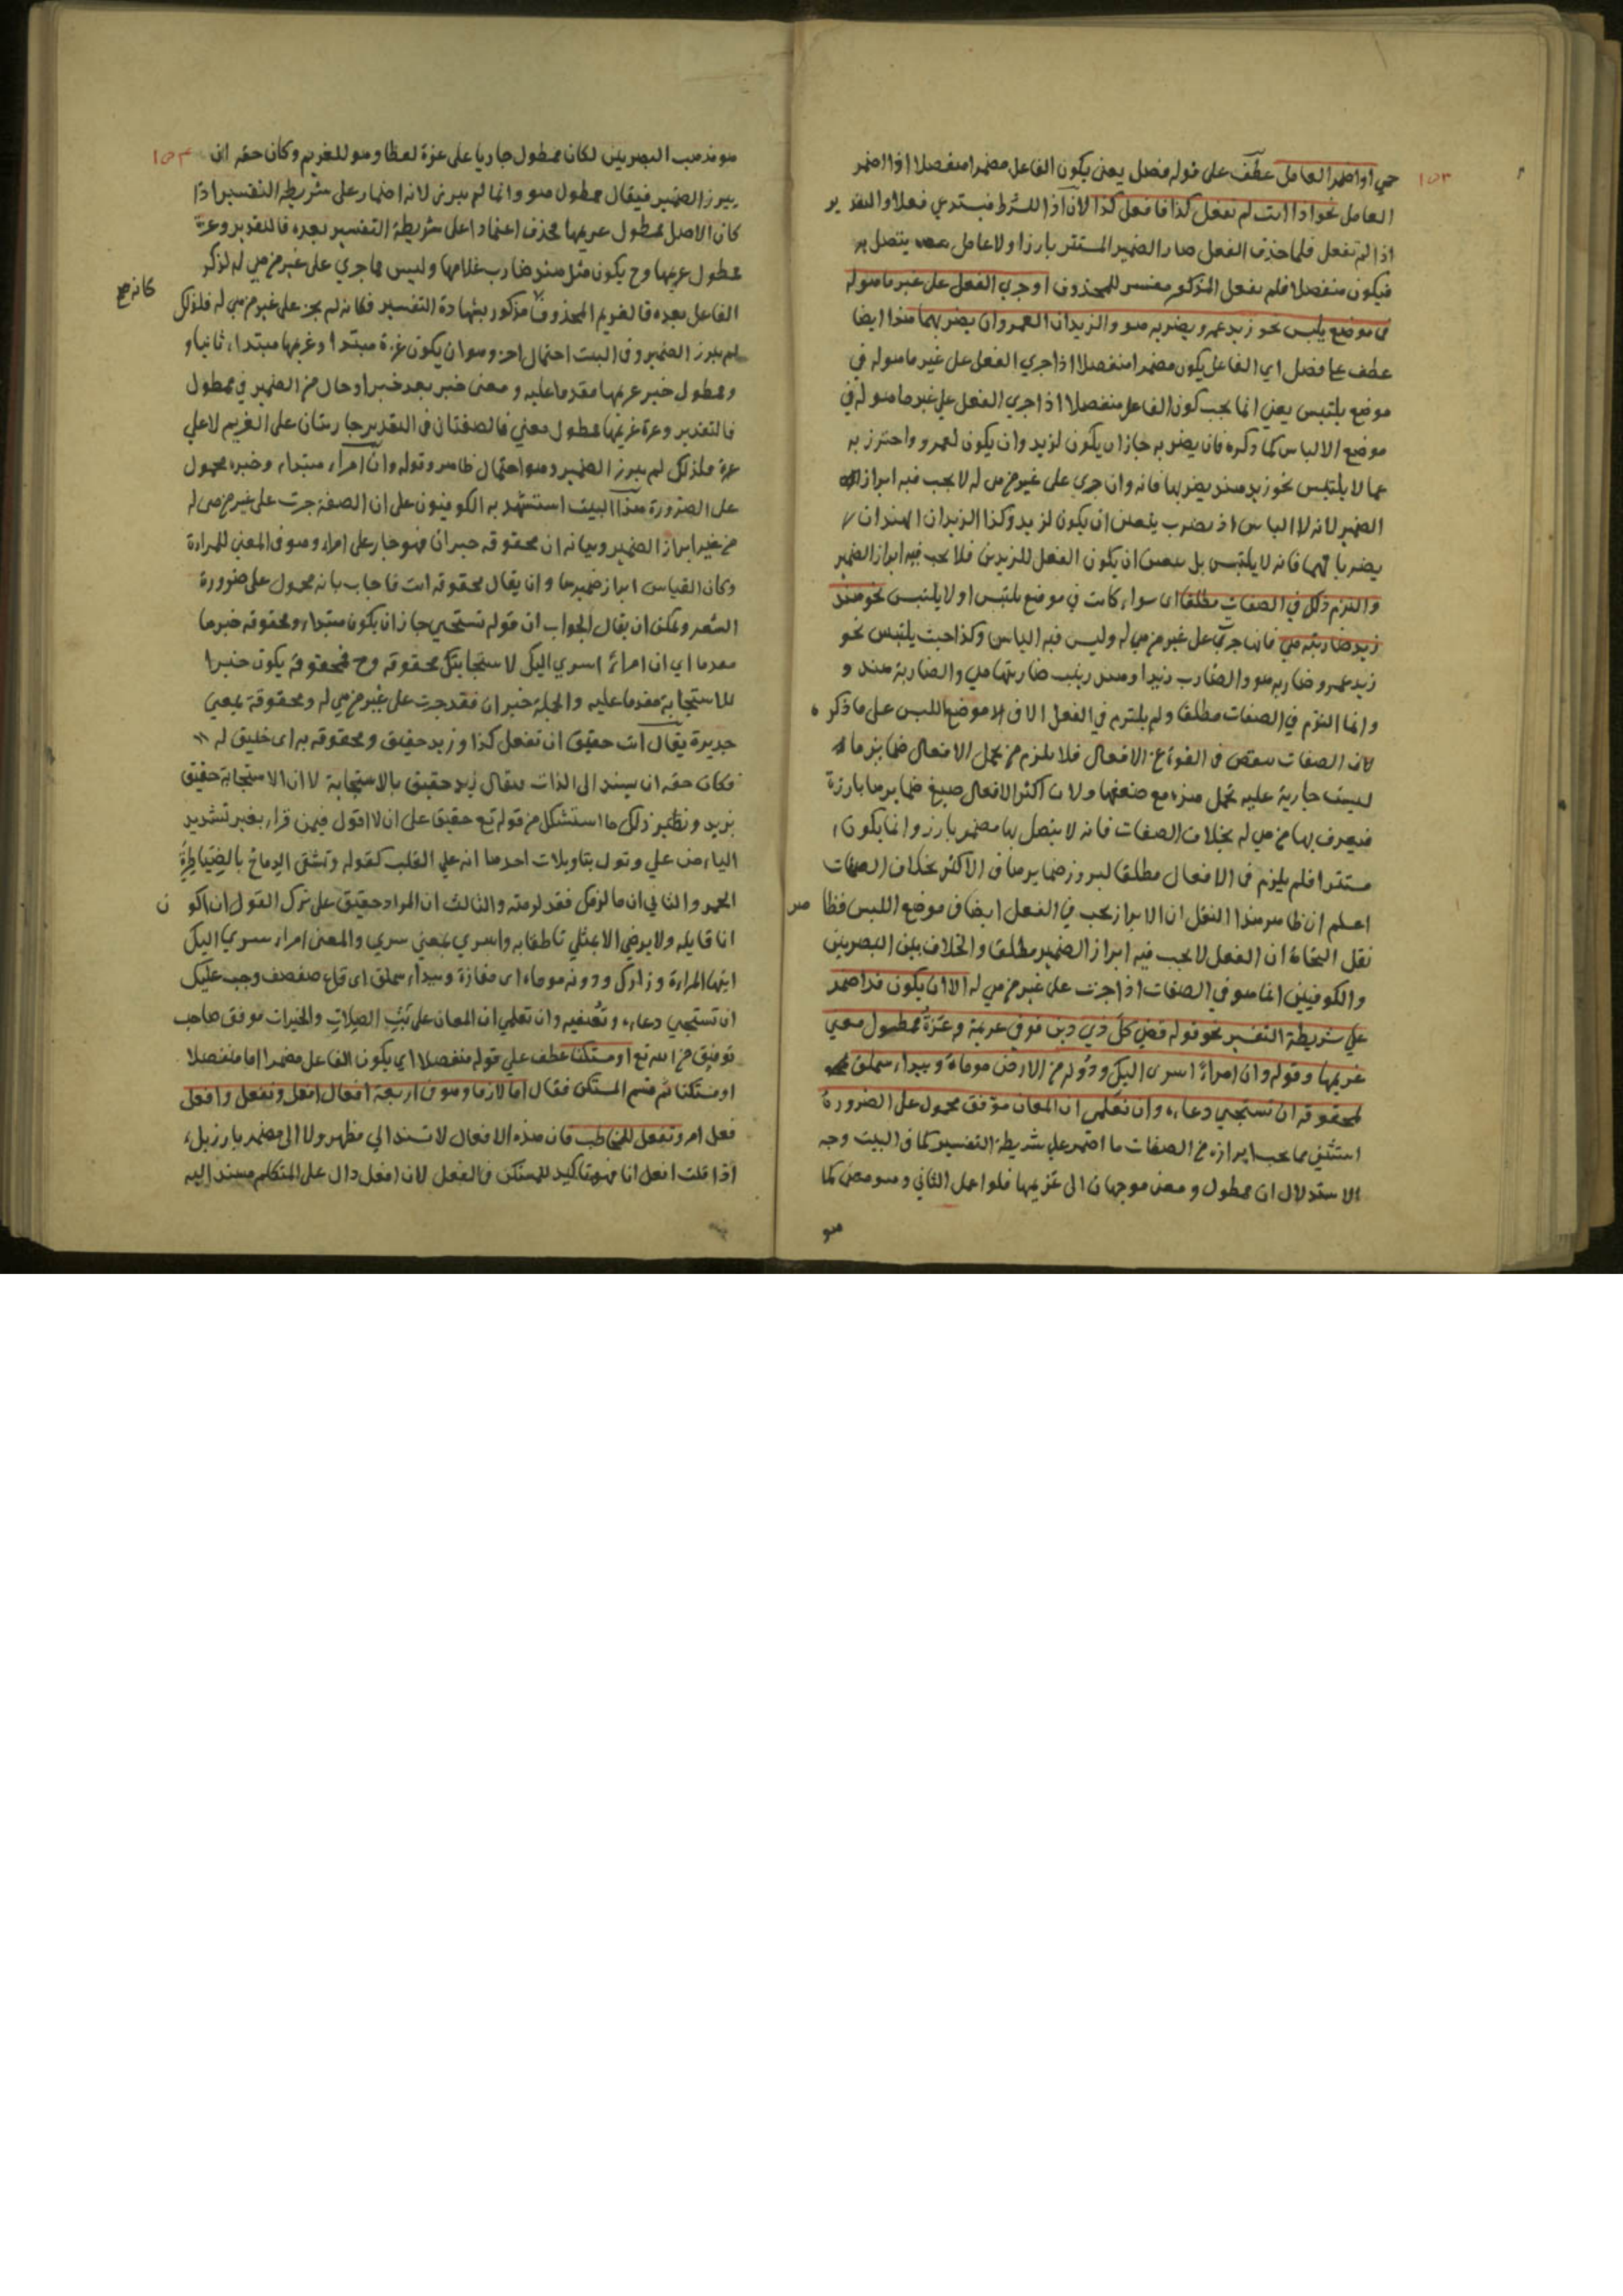 ١٥٣
حي او اضمر العامل عطف على قوله فصل يعني يكون الفاعل مضمرا منفصلا اذا اضمر
العامل نحو اذا انت لم تفعل كذا فافعل كذا لان اذا للشرط فيستدعي فعلا والتقدير
اذا لم تفعل فلما حذف الفعل صار الضمير المستتر بارزا ولا عامل يتصل به
فيكون منفصلا فلم تفعل المذكور مفسر للمحذوف او جري الفعل على غير ما هو له
في موضع يلبس نحو زيد عمرو يضربه هو والزيدان العمروان يضربهما هذا ايضا
عطف على فصل اي الفاعل يكون مضمرا منفصلا اذا جري الفعل على غير ما هو له في
موضع يلتبس يعني انما يجب كون الفاعل منفصلا اذا جري الفعل على غير ما هو له في
موضع الالباس كما ذكره فان يضربه جاز ان يكون لزيد وان يكون لعمرو واحترز به
عما لا يلتبس نحو زيد هند يضربها فانه وان جري على غير من هي له لا يجب فيه ابراز
الضمير لانه لا الباس اذ يضرب يتعين ان يكون لزيد وكذا الزيدان الهندان
يضربانهما فانه لا يلتبس بل يتعين ان يكون الفعل للزيدين فلا يجب فيه ابراز الضمير
والتزم ذلك في الصفات مطلقا اي سواء كانت في موضع يلتبس او لا يلتبس نحو هند
زيد ضاربته هي فانها جري على غير من هي له وليس فيه الباس وكذا حيث يلتبس نحو
زيد عمرو ضاربه هو والضارب زيدا وهند زينب ضاربتها هي والضاربة هند و
وانما التزم في الصفات مطلقا ولم يلتزم في الفعل الا في موضع اللبس على ما ذكر
لان الصفات تنقص في القوة عن الافعال فلا يلزم من تحمل الافعال ضماير ما
ليست جارية عليه تحمل هذه مع ضعفها ولان اكثر الافعال صيغ ضمايرها بارزة
فيعرف بها من هي له بخلاف الصفات فانه لا يتصل بها مضمر بارز وانما يكون
مستترا فلم يلزم في الافعال مطلقا لبروز ضمايرها في الاكثر بخلاف الصفات
اعلم ان ظاهر هذا النقل ان الابراز يجب في الفعل ايضا في موضع اللبس فظاهر
نقل النحاة ان الفعل لا يجب فيه ابراز الضمير مطلقا والخلاف بين البصريين
والكوفيين انما هو في الصفات اذا جرت على غير من هي له الا ان يكون قد اضمر
على شريطة التفسير نحو قوله قضى كل ذي دين فوفى غريمه وعزة ممطول معنى
غريمها وقوله وان امراء اسرى اليك ودونه من الارض موماة وبيداء سملق
لمحقوقة ان تستجيبي دعاءه وان تعلمي ان المعان موفق محمول على الضرورة
استثنى مما يجب ابرازه من الصفات ما اضمر على شريطة التفسير كما في البيت وجه
الاستدلال ان ممطول ومعنى موجهان الى غريمها فلو اعمل الثاني وهو معنى كما
هو
١٥٤
هو مذهب البصريين لكان ممطول جاريا على عزة لفظا وهو للغريم وكان حقه ان
يبرز الضمير فيقال ممطول هو وانما لم يبرز لانه اضمار على شريطة التفسير اذا
كان الاصل ممطول غريمها فحذف اعتمادا على شريطة التفسير بعده فالتقدير وعزة
ممطول غريمها وح يكون مثل هند ضارب غلامها وليس مما جري على غير من هي له لذكر
الفاعل بعده فالغريم المحذوف كالمذكور بشهادة التفسير فكانه لم يجر على غير من هي له فلذلك
كانه صح
لم يبرز الضمير وفي البيت احتمال اخر وهو ان يكون عزة مبتدا وغريمها مبتداء ثانيا و
وممطول خبر غريمها مقدما عليه ومعنى خبر بعد خبر او حال من الضمير في ممطول
فالتقدير وعزة غريمها ممطول معنى فالصفتان في التقدير جاريتان على الغريم لا على
عزة فلذلك لم يبرز الضمير وهو احتمال ظاهر وقوله وان امراء مبتداء وخبره محمول
على الضرورة هذا البيت استشهد به الكوفيون على ان الصفة جرت على غير من هي له
من غير ابراز الضمير وبيانه ان محقوقة خبر ان فهو جار على امراء وهو في المعنى للمراءة
وكان القياس ابراز ضميرها وان يقال محقوقة انت فاجاب بانه محمول على ضرورة
الشعر ويمكن ان يقال الجواب ان قوله تستجيبي جاز ان يكون مبتداء ومحقوقة خبرها
مقدما اي ان امراء اسري اليك لاستجابتك محقوقة وح فمحقوقة يكون خبرا
للاستجابة مقدما عليه والجملة خبر ان فقد جرت على غير من هي له ومحقوقة بمعنى
جديرة يقال انت حقيق ان تفعل كذا وزيد حقيق ومحقوقة به اي خليق له
فكان حقه ان يسند الى الذات فيقال زيد حقيق بالاستجابة لا ان الاستجابة حقيق
بزيد ونظير ذلك ما استشكل من قوله تع حقيق على ان لا اقول فيمن قراء بغير تشديد
الياء من علي وتول بتاويلات احدها انه على القلب كقوله وتشقى الرماح بالضياطرة
الحمر والثاني ان ما لزمك فقد لزمته والثالث ان المراد حقيق على ترك القول ان اكون
انا قايله ولا يرضى الا بمثلي ناطقا به واسري بمعنى سري والمعنى امراء سري اليك
ايتها المراءة وزارك ودونه موماء اي مفازة وبيداء سملق اي قاع صفصف وجب عليك
ان تستجيبي دعاءه وتعنفيه وان تعلمي ان المعان على نيل الصلات والخيرات موفق صاحب
توفيق من الله تع او مستكنا عطف على قوله منفصلا اي يكون الفاعل مضمرا اما منفصلا
او مستكنا ثم قسم المستكن فقال اما لازما وهو في اربعة افعال افعل ونفعل وافعل
فعل امر وتفعل للمخاطب فان هذه الافعال لا تسند الى مظهر ولا الى مضمر بارز بل
اذا قلت افعل انا فهو تاكيد للمستكن في الفعل لان افعل دال على المتكلم مسند اليه